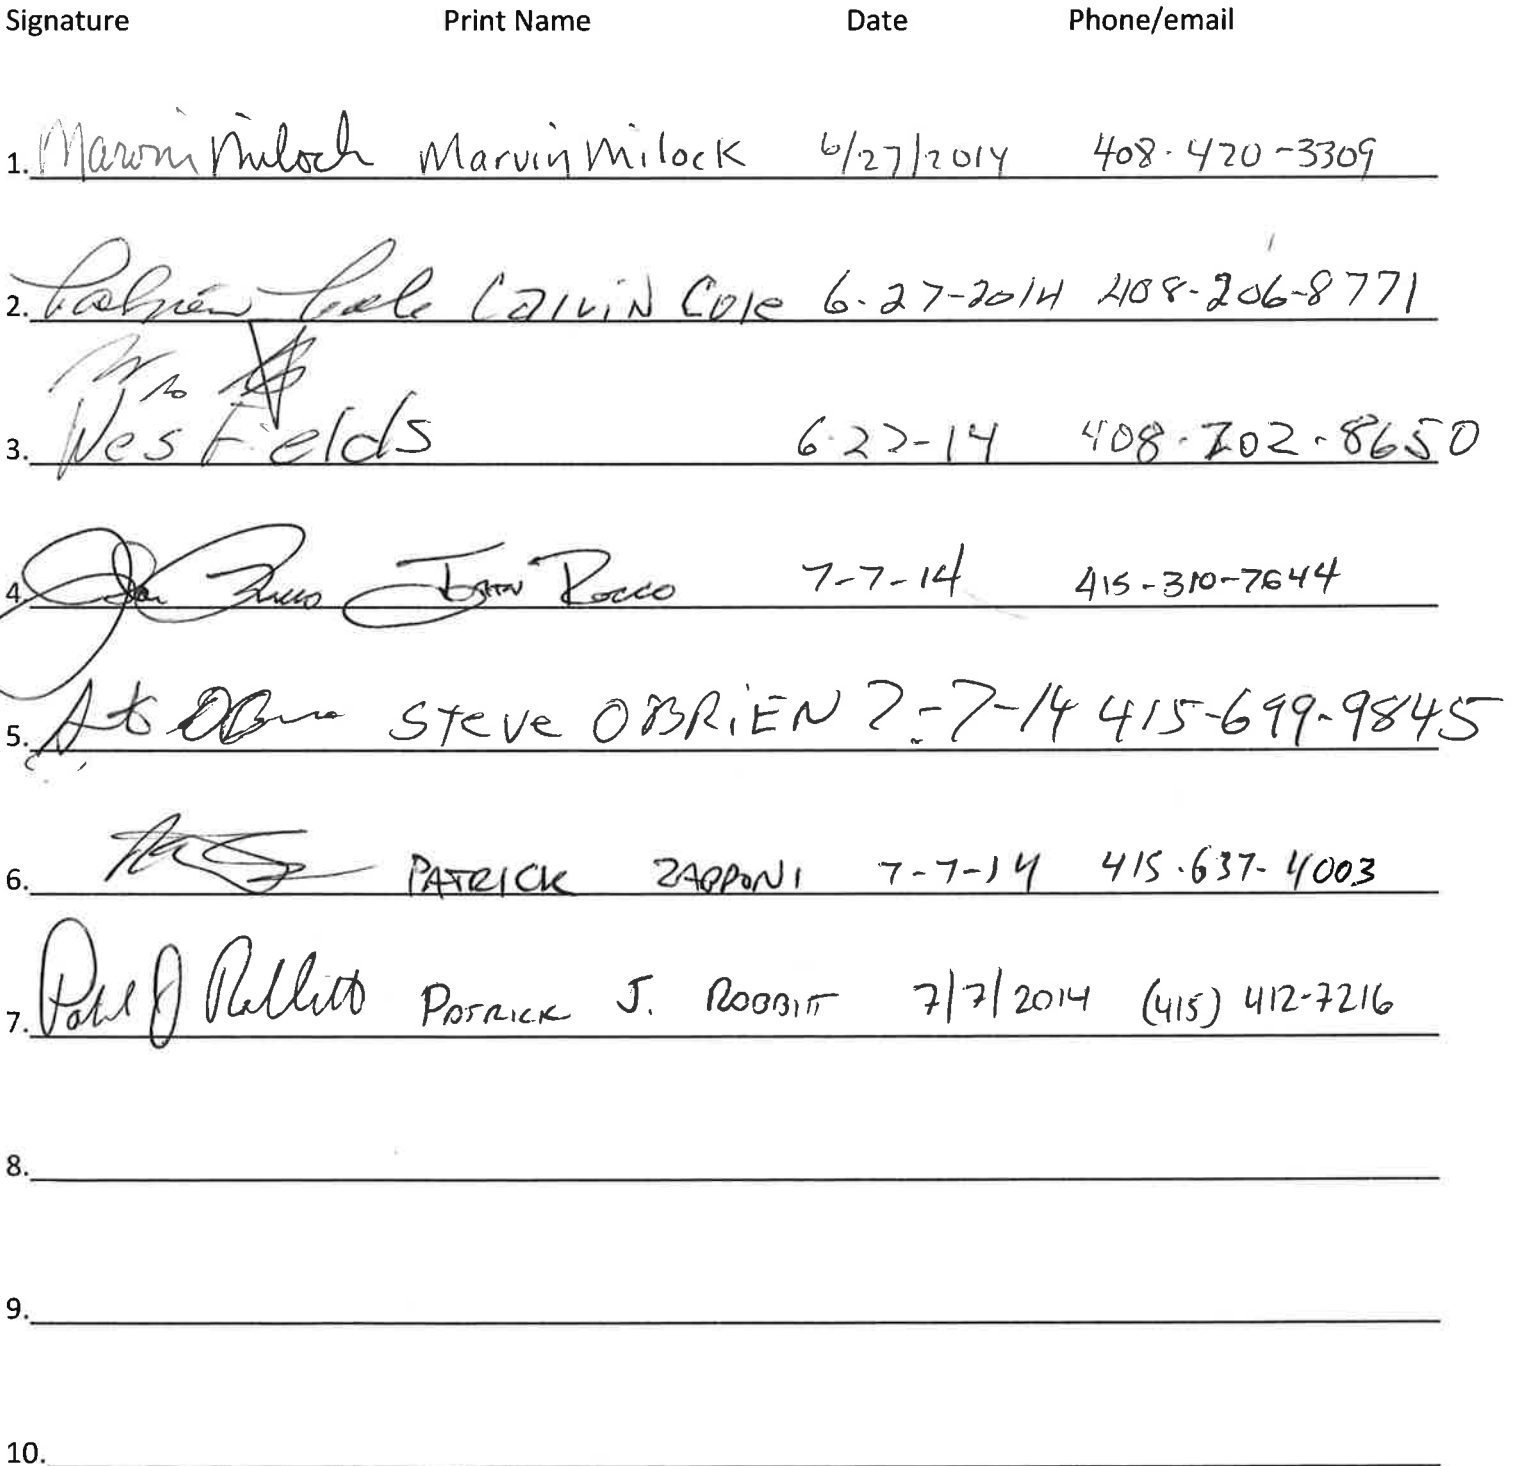 Signature Print Name Date Phone/email
1. Marvin Milock Marvin Milock 6/27/2014 408-420-3309
2. Calvin Cole Calvin Cole 6-27-2014 408-206-8771
3. Wes Fields 6-27-14 408-202-8650
4. Rocco 7-7-14 415-310-7644
5. Steve OBRiEN 7-7-14 415-699-9845
6. PATRICK ZAPPONI 7-7-14 415-637-4003
7. PATRICK J. ROBBITT 7/7/2014 (415) 412-7216
8.
9.
10.